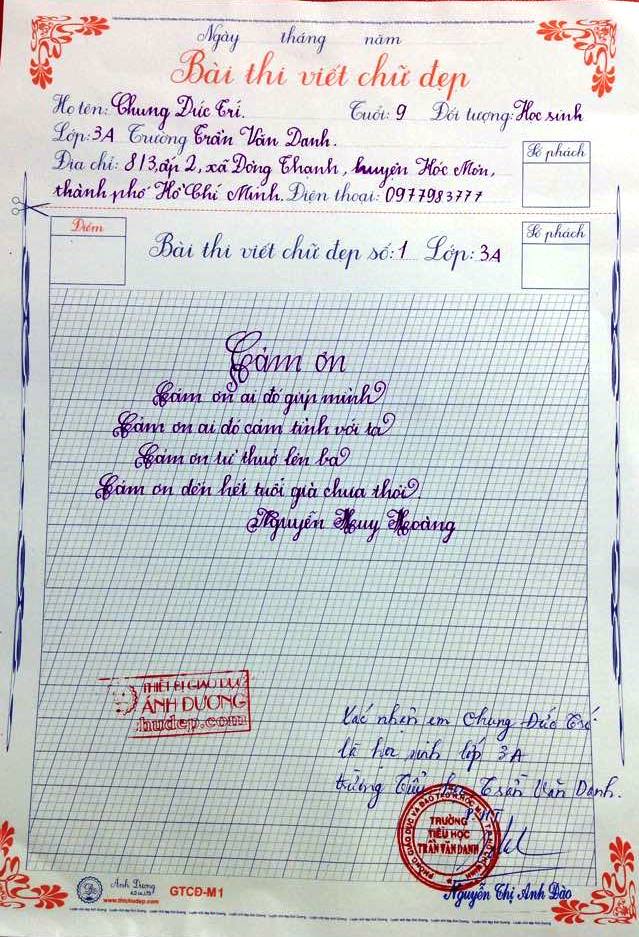 Ngày tháng năm
Bài thi viết chữ đẹp
Họ tên: Chung Đức Trí. Tuổi: 9 Đối tượng: Học sinh
Lớp: 3A Trường Trần Văn Danh.
Địa chỉ: 813, ấp 2, xã Đông Thạnh, huyện Hóc Môn,
thành phố Hồ Chí Minh. Điện thoại: 0977983777
Số phách
Điểm
Bài thi viết chữ đẹp số: 1 Lớp: 3A
Số phách
Cảm ơn
Cám ơn ai đó giúp mình
Cảm ơn ai đó cảm tình với ta
Cảm ơn từ thuở lên ba
Cám ơn đến hết tuổi già chưa thôi.
Nguyễn Huy Hoàng
THIẾT BỊ GIÁO DỤC
ÁNH DƯƠNG
hudep.com
Xác nhận em Chung Đức Trí
là học sinh lớp 3A
trường Tiểu học Trần Văn Danh.
TRƯỜNG
TIỂU HỌC
TRẦN VĂN DANH
Nguyễn Thị Anh Đào
Anh Dương
www.thichudep.com
GTCĐ-M1